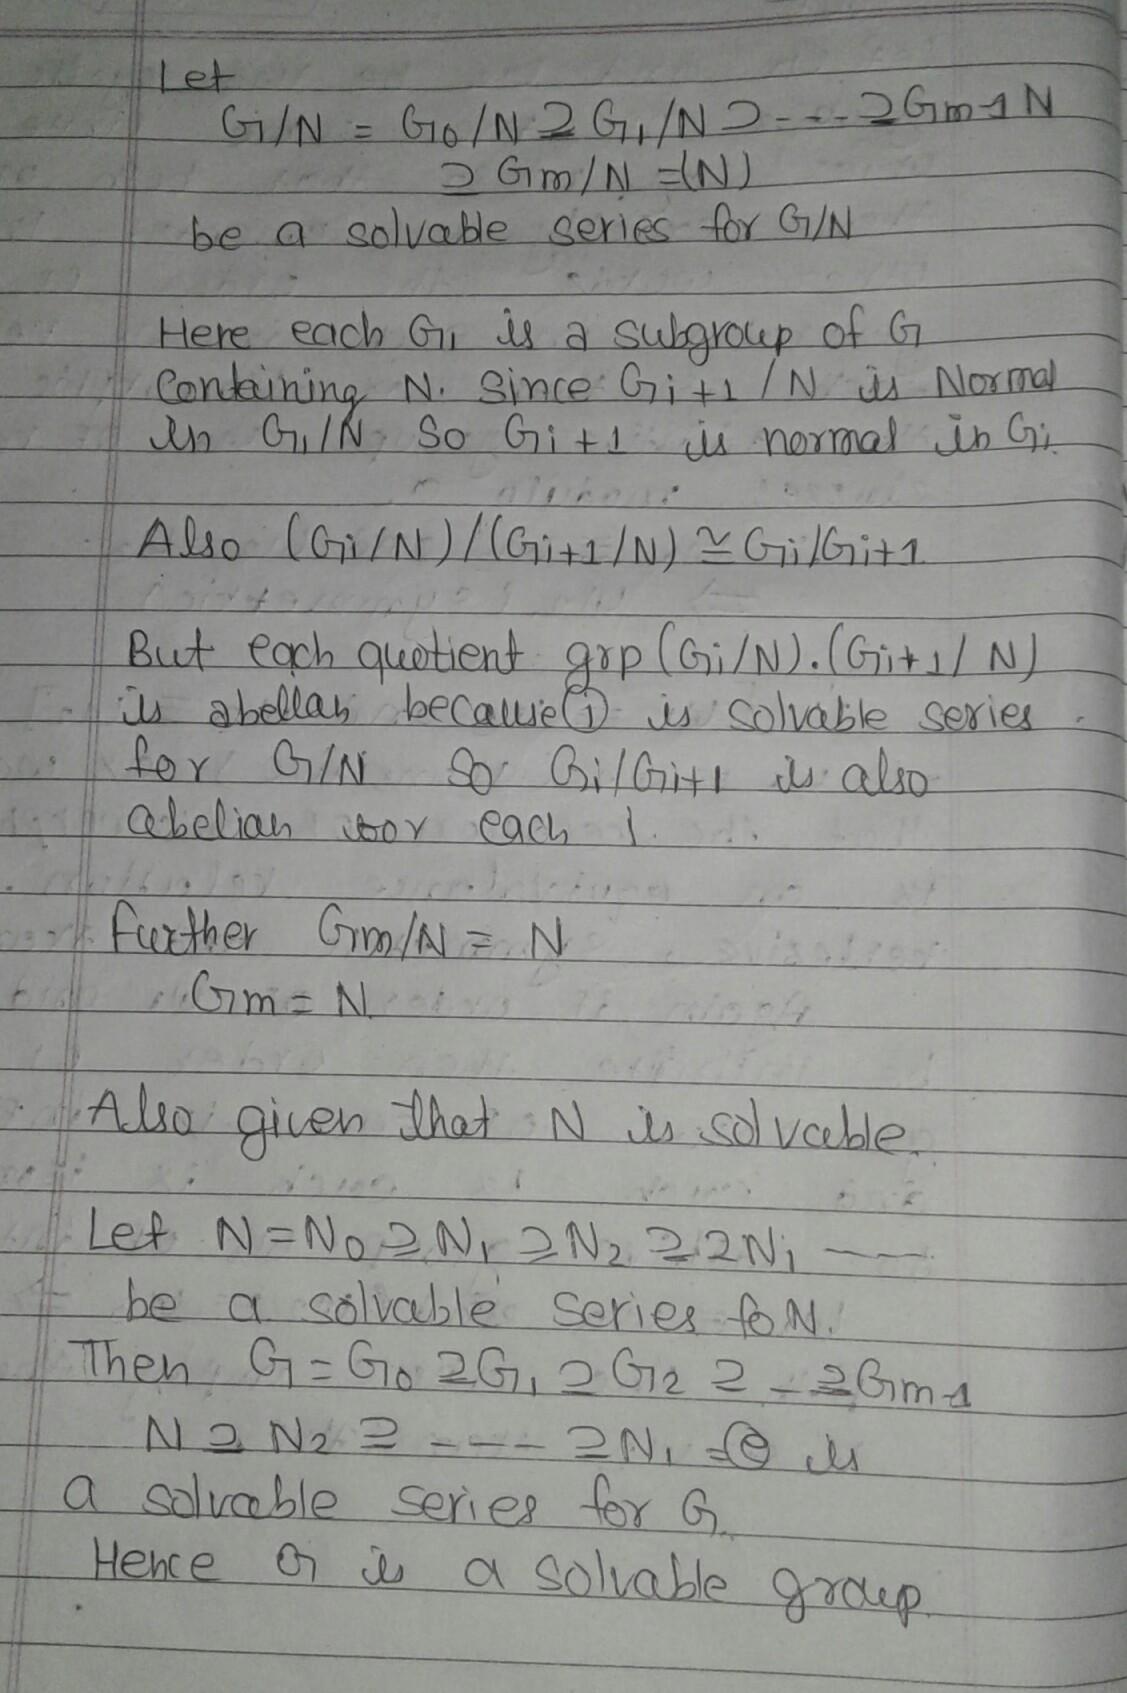 Let
G/N = G0/N ⊇ G1/N ⊃ --- ⊇ Gm-1 N
⊇ Gm/N = (N)
be a solvable series for G/N
Here each G1 is a subgroup of G
Containing N. Since Gi+1 /N is Normal
in G1/N So Gi+1 is normal in Gi
Also (Gi/N)/(Gi+1/N) ≅ Gi/Gi+1
But each quotient grp (Gi/N).(Gi+1/N)
is abellah because ① is solvable series
for G/N So Gi/Gi+1 is also
abelian for each 1.
Further Gm/N = N
Gm = N
Also given that N is solvable.
Let N = N0 ⊇ N1 ⊇ N2 ⊇ ⊇ Ni ----
be a solvable series fo N.
Then G = G0 ⊇ G1 ⊇ G2 ⊇ -- ⊇ Gm-1
N ⊇ N2 ⊇ ---- ⊇ N1 = e is
a solvable series for G.
Hence G is a solvable group.